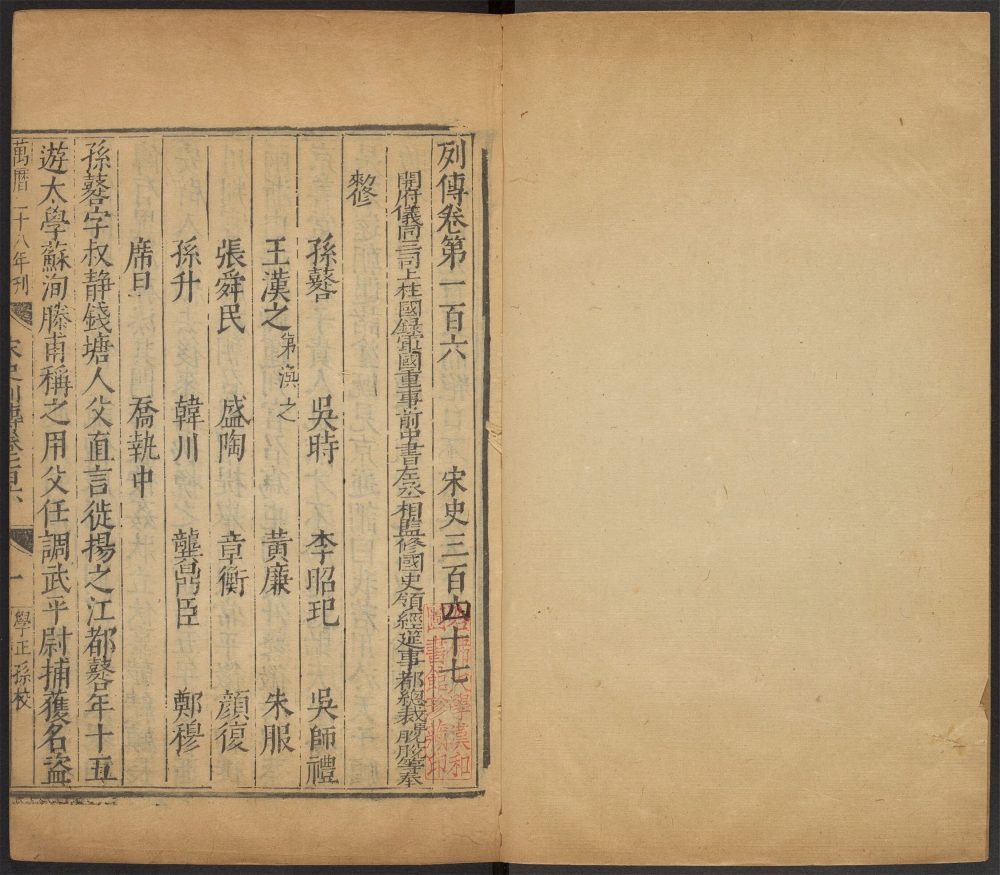 列傳卷第一百六　宋史三百四十七
開府儀同三司上柱國錄軍國重事前中書左丞相監修國史領經筵事都總裁脫脫等奉
勑修
孫鼛　吳時　李昭玘　吳師禮
王漢之 弟渙之　黃廉　朱服
張舜民　盛陶　章衡　顏復
孫升　韓川　龔鼎臣　鄭穆
席旦　喬執中
孫鼛字叔靜錢塘人父直言徙揚之江都鼛年十五
遊太學蘇洵滕甫稱之用父任調武平尉捕獲名盜
萬曆二十八年刊
宋史列傳卷一百六
一
學正孫校
哈佛大學漢和
圖書館珍藏印